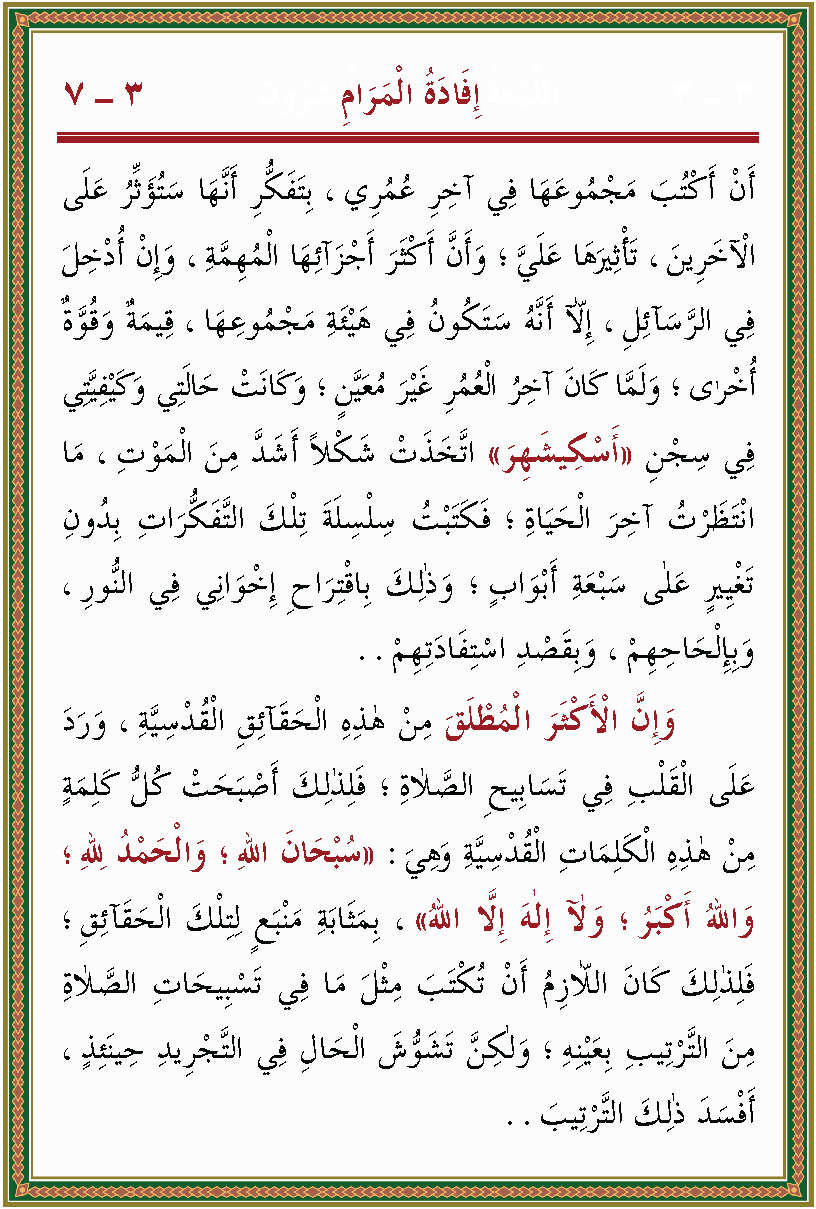 إِفَادَةُ الْمَرَامِ ٣ – ٧
أَنْ أَكْتُبَ مَجْمُوعَهَا فِي آخِرِ عُمُرِي ، بِتَفَكُّرِ أَنَّهَا سَتُؤَثِّرُ عَلَى
الْآخَرِينَ ، تَأْثِيرَهَا عَلَيَّ ؛ وَأَنَّ أَكْثَرَ أَجْزَآئِهَا الْمُهِمَّةِ ، وَإِنْ أُدْخِلَ
فِي الرَّسَآئِلِ ، إِلَّآ أَنَّهُ سَتَكُونُ فِي هَيْئَةِ مَجْمُوعِهَا ، قِيمَةٌ وَقُوَّةٌ
أُخْرٰى ؛ وَلَمَّا كَانَ آخِرُ الْعُمُرِ غَيْرَ مُعَيَّنٍ ؛ وَكَانَتْ حَالَتِي وَكَيْفِيَّتِي
فِي سِجْنِ «أَسْكِيشَهِرَ» اتَّخَذَتْ شَكْلاً أَشَدَّ مِنَ الْمَوْتِ ، مَا
انْتَظَرْتُ آخِرَ الْحَيَاةِ ؛ فَكَتَبْتُ سِلْسِلَةَ تِلْكَ التَّفَكُّرَاتِ بِدُونِ
تَغْيِيرٍ عَلٰى سَبْعَةِ أَبْوَابٍ ؛ وَذٰلِكَ بِاقْتِرَاحِ إِخْوَانِي فِي النُّورِ ،
وَبِإِلْحَاحِهِمْ ، وَبِقَصْدِ اسْتِفَادَتِهِمْ . .
وَإِنَّ الْأَكْثَرَ الْمُطْلَقَ مِنْ هٰذِهِ الْحَقَآئِقِ الْقُدْسِيَّةِ ، وَرَدَ
عَلَى الْقَلْبِ فِي تَسَابِيحِ الصَّلَاةِ ؛ فَلِذٰلِكَ أَصْبَحَتْ كُلُّ كَلِمَةٍ
مِنْ هٰذِهِ الْكَلِمَاتِ الْقُدْسِيَّةِ وَهِيَ : «سُبْحَانَ اللهِ ؛ وَالْحَمْدُ لِلهِ ؛
وَاللهُ أَكْبَرُ ؛ وَلَآ إِلٰهَ إِلَّا اللهُ» ، بِمَثَابَةِ مَنْبَعٍ لِتِلْكَ الْحَقَآئِقِ ؛
فَلِذٰلِكَ كَانَ اللَّازِمُ أَنْ تُكْتَبَ مِثْلَ مَا فِي تَسْبِيحَاتِ الصَّلَاةِ
مِنَ التَّرْتِيبِ بِعَيْنِهِ ؛ وَلٰكِنَّ تَشَوُّشَ الْحَالِ فِي التَّجْرِيدِ حِينَئِذٍ ،
أَفْسَدَ ذٰلِكَ التَّرْتِيبَ . .